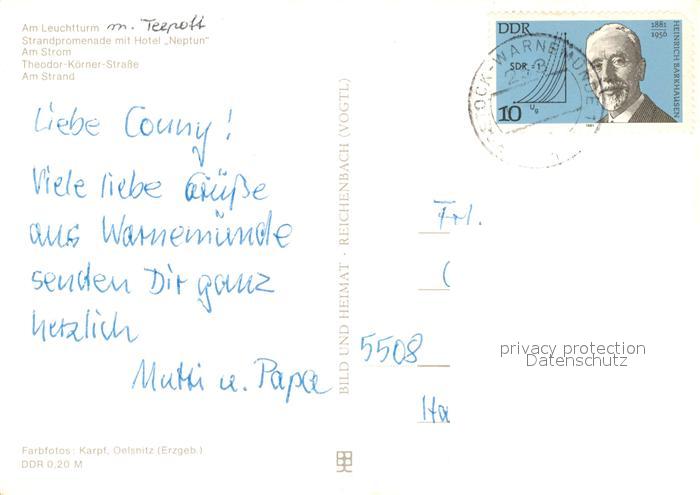 Am Leuchtturm m. Teepott
Strandpromenade mit Hotel „Neptun"
Am Strom
Theodor-Körner-Straße
Am Strand
Liebe Conny!
Viele liebe Grüße
aus Warnemünde
senden Dir ganz
herzlich
Mutti u. Papa
Farbfotos: Karpf, Oelsnitz (Erzgeb.)
DDR 0,20 M
BILD UND HEIMAT · REICHENBACH (VOGTL)
DDR
1881
1956
HEINRICH BARKHAUSEN
SDR =1
Ug
10
1981
OCK-WARNEMÜNDE
Frl.
(
5508
Ha
privacy protection
Datenschutz